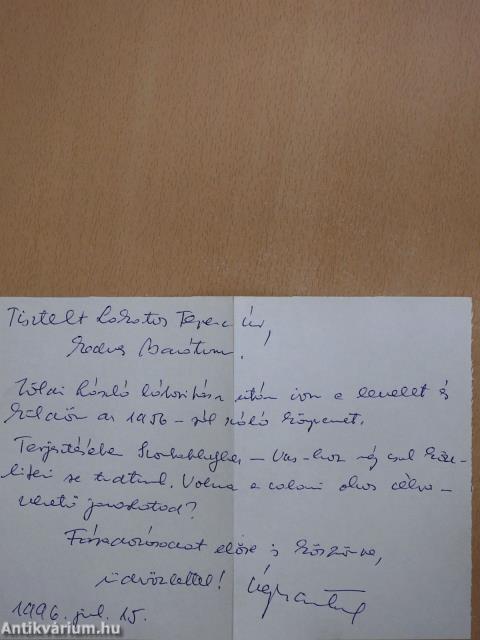 Tisztelt Lakatos Ferenc úr,
Kedves Barátom.
László után írom e levelet és
küldöm az 1956-ról szóló könyvemet.
Terjesztésében Szombathelyhez – Vas-hoz még csak köze-
líteni se tudtunk. Volna-e valami okos célra-
vezető javaslatod?
Fáradozásodat előre is köszönve,
üdvözlettel!
1996. júl. 15.
Antikvárium.hu